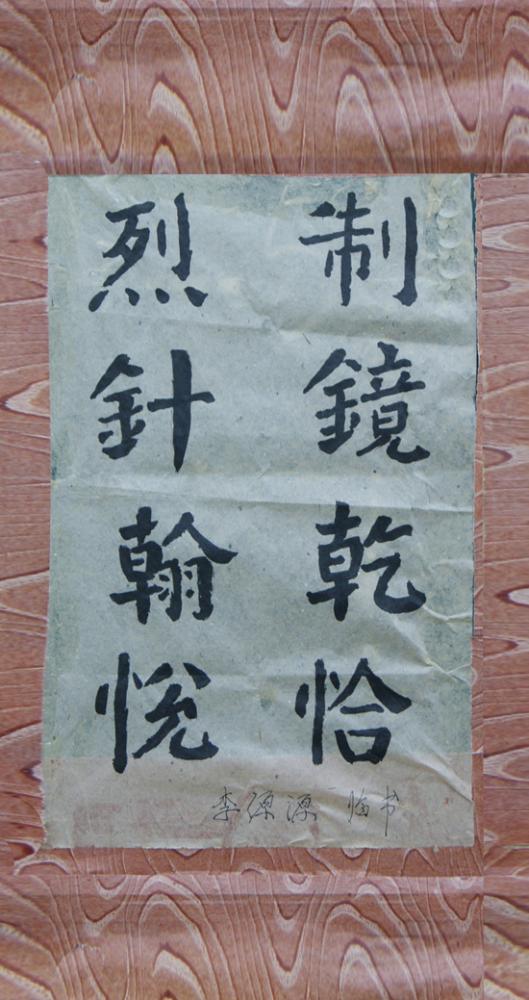 制鏡乾恰
烈針翰悅
李源源临书